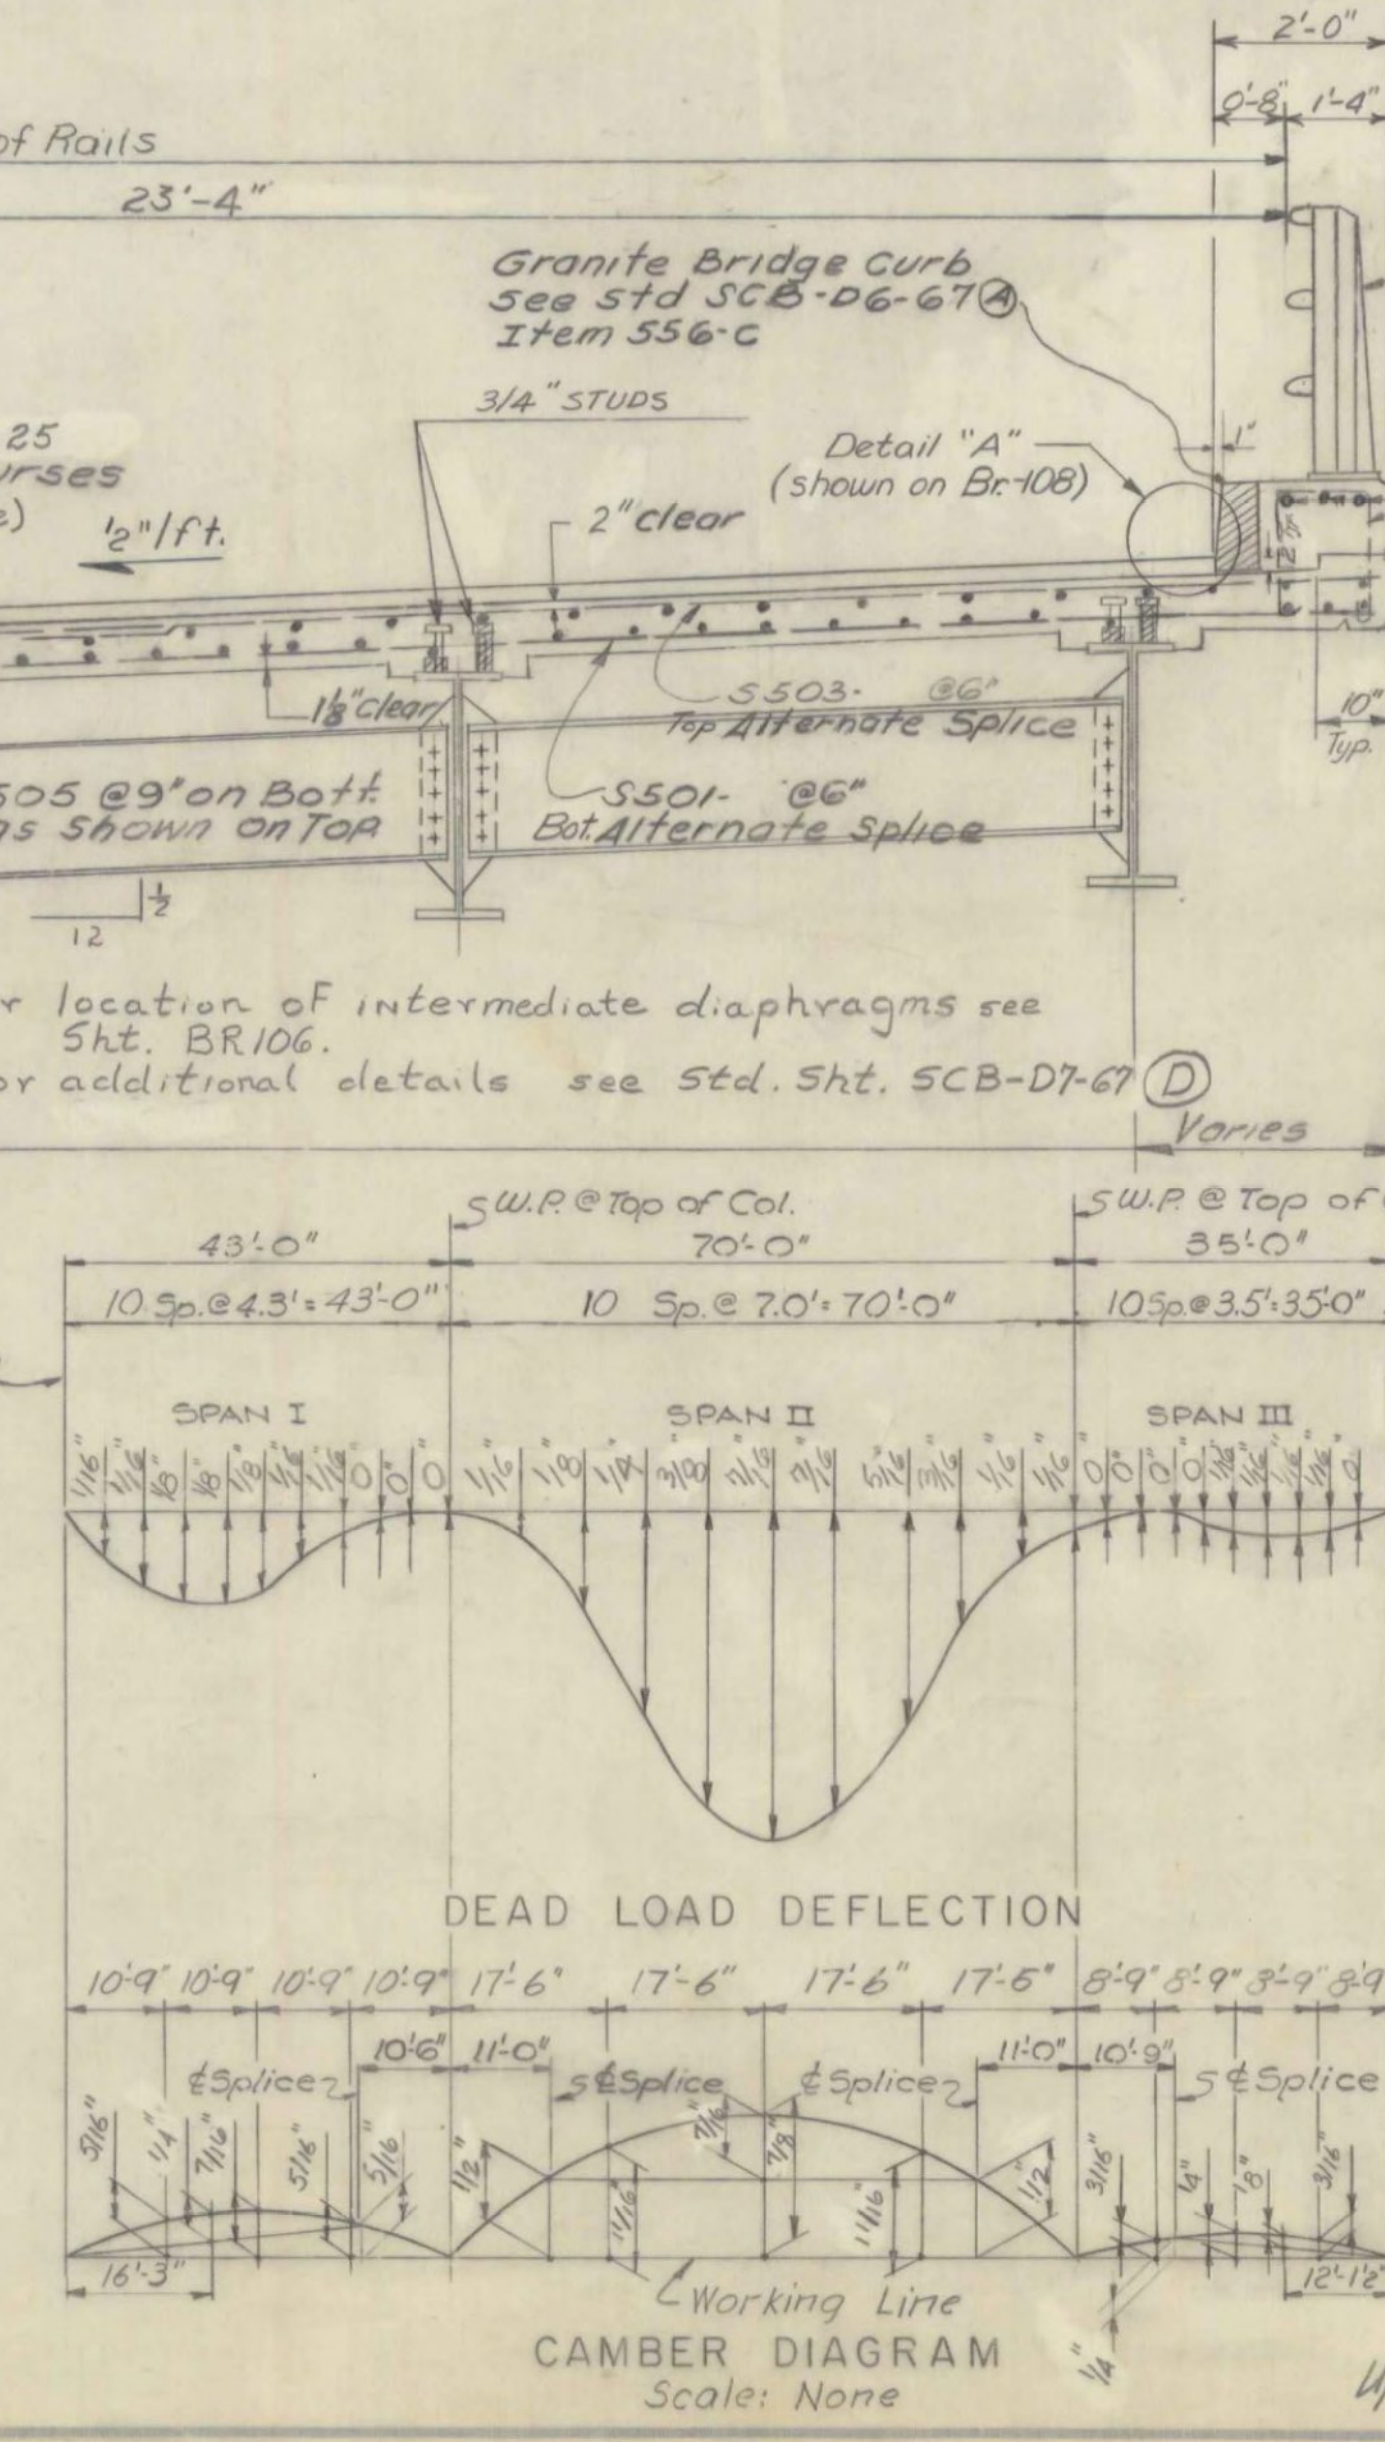 2'-0"
0'-8" 1'-4"
of Rails
23'-4"
Granite Bridge Curb
see std SCB-D6-67 A
Item 556-C
3/4" STUDS
25
urses
e)
1/2"/ft.
2" clear
Detail "A"
(shown on Br-108)
1"
2" Typ
1 1/8" Clear
S503- @6"
Top Alternate Splice
10"
Typ.
505 @9" on Bott.
ns Shown on Top
S501- @6"
Bot. Alternate Splice
1/2
12
r location of intermediate diaphragms see
Sht. BR106.
or additional details see Std. Sht. SCB-D7-67 D
Varies
W.P. @ Top of Col.
W.P. @ Top of
43'-0" 70'-0" 35'-0"
10 Sp. @ 4.3' = 43'-0" 10 Sp. @ 7.0' = 70'-0" 10 Sp. @ 3.5' = 35'-0"
SPAN I SPAN II SPAN III
1/16" 1/16" 1/8" 1/8" 1/8" 1/16" 1/16" 0" 0" 0" 1/16" 1/8" 1/4" 3/8" 7/16" 7/16" 5/16" 3/16" 1/16" 1/16" 0" 0" 0" 0" 1/16" 1/16" 1/16" 1/16" 0"
DEAD LOAD DEFLECTION
10'-9" 10'-9" 10'-9" 10'-9" 17'-6" 17'-6" 17'-6" 17'-6" 8'-9" 8'-9" 8'-9" 8'-9
10'-6" 11'-0" 11'-0" 10'-9"
℄ Splice ℄ Splice ℄ Splice ℄ Splice
5/16" 1/4" 7/16" 5/16" 5/16" 1/2" 11/16" 7/16" 7/8" 11/16" 1/2" 3/16" 1/4" 1/8" 3/16"
16'-3" 12'-1 1/2"
Working Line
CAMBER DIAGRAM
1/4"
Scale: None